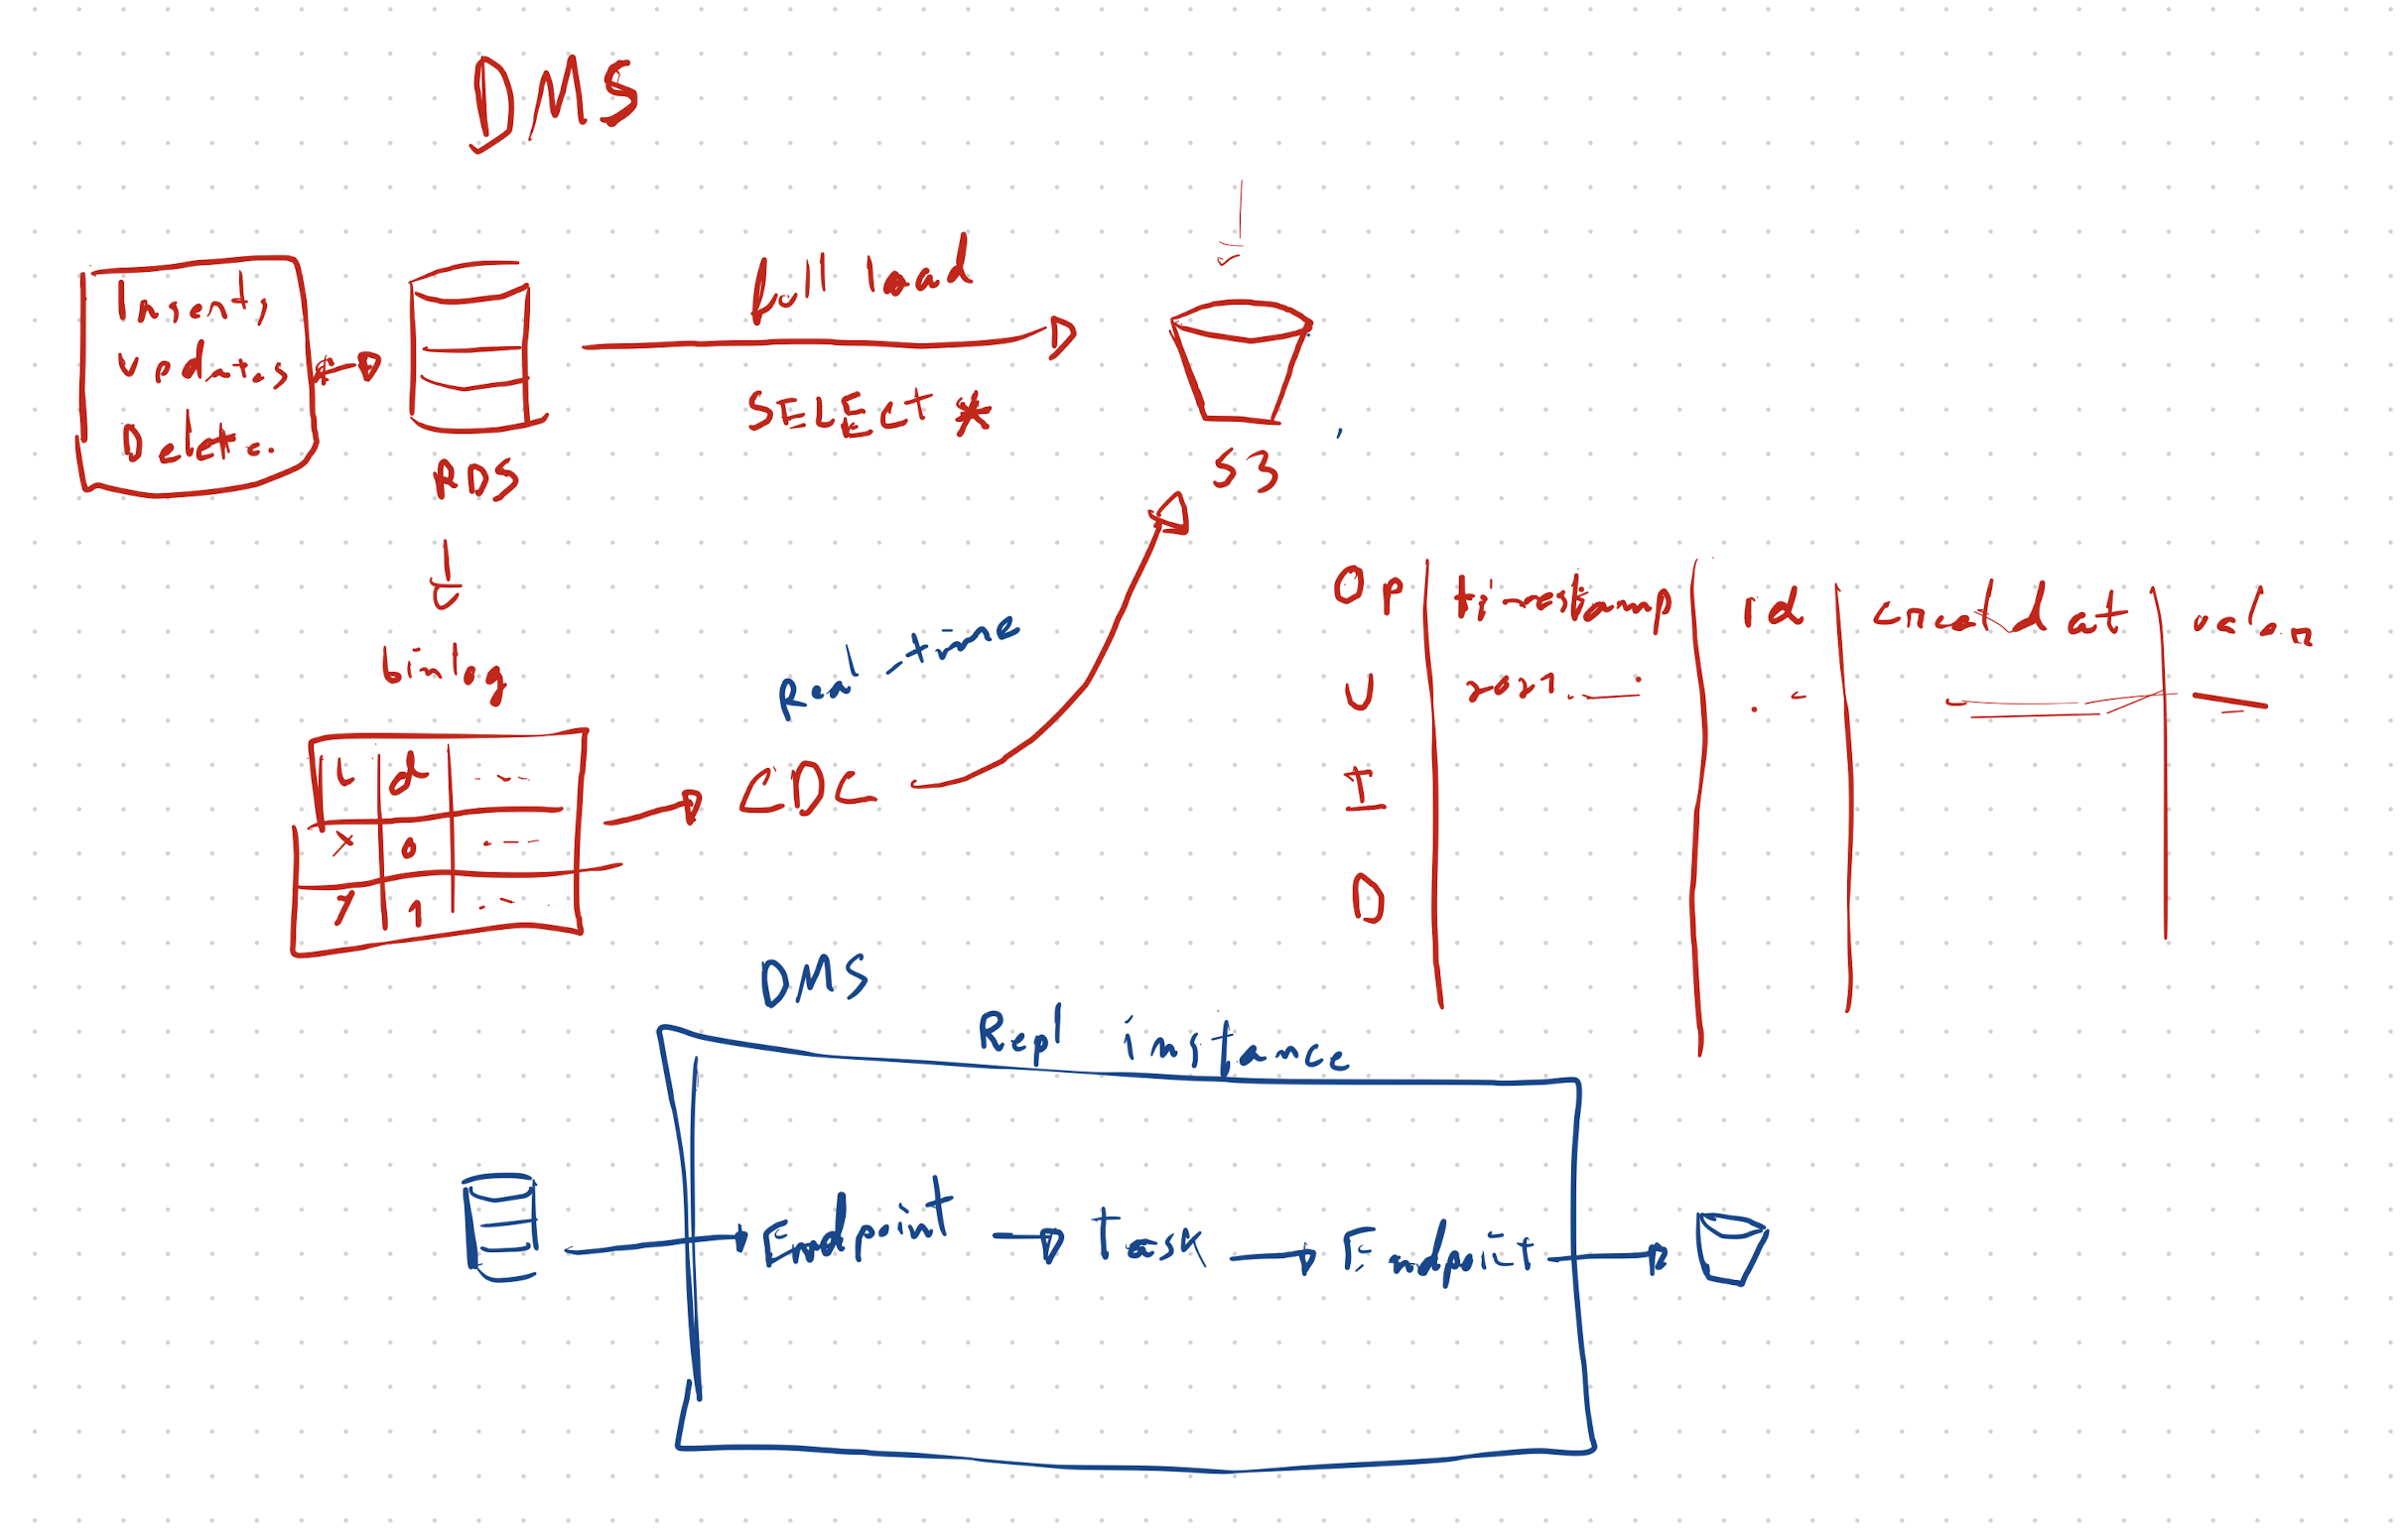 DMS
Inserts,
Updates
Delete.
RDS
Full load
SELECT *
S3
binlog
U d ---
x 0 ---
7 1 --
CDC
Real-time
Op timestamp id created at valor
U 2021
I
D
DMS
Repl instance
Endpoint Task Endpoint